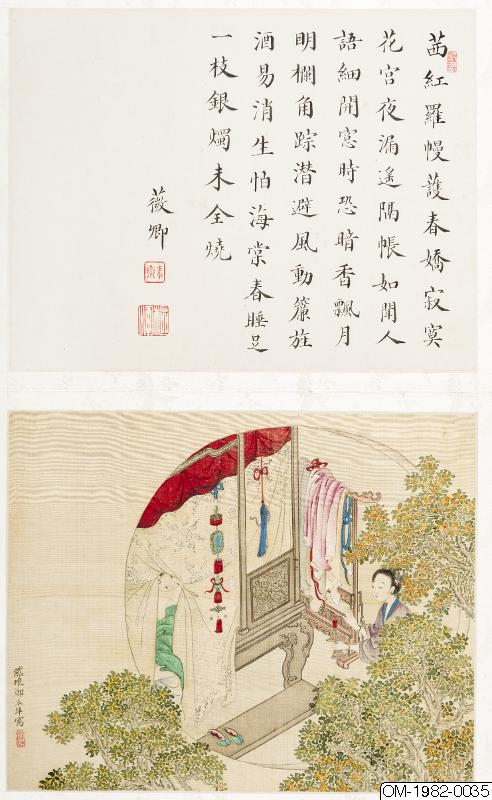 茜紅羅幔護春嬌寂寞
花宮夜漏遙隔帳如聞人
語細開窓時恐暗香飄月
明欄角踪潜避風動簾旌
酒易消生怕海棠春睡足
一枝銀燭未全燒
薇卿
OM-1982-0035